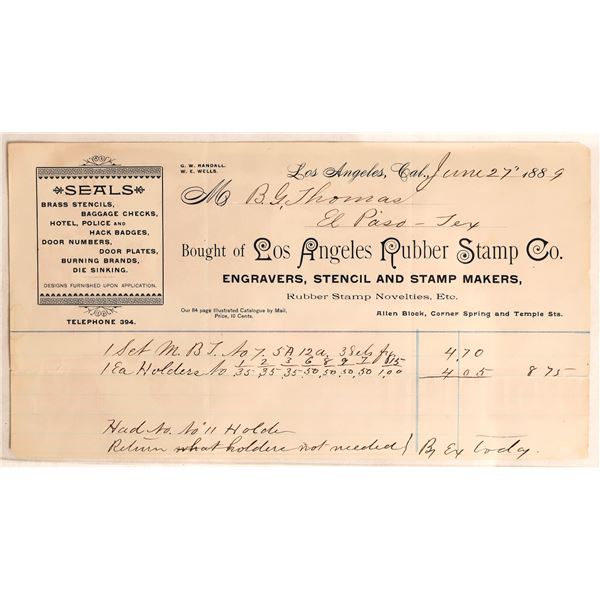 SEALS
BRASS STENCILS,
BAGGAGE CHECKS,
HOTEL, POLICE AND
HACK BADGES,
DOOR NUMBERS,
DOOR PLATES,
BURNING BRANDS,
DIE SINKING.
DESIGNS FURNISHED UPON APPLICATION.
TELEPHONE 394.
G. W. RANDALL.
W. E. WELLS.
Los Angeles, Cal., June 27" 1889
M B. G. Thomas
El Paso - Tex
Bought of Los Angeles Rubber Stamp Co.
ENGRAVERS, STENCIL AND STAMP MAKERS,
Rubber Stamp Novelties, Etc.
Our 84 page Illustrated Catalogue by Mail,
Price, 10 Cents.
Allen Block, Corner Spring and Temple Sts.
1 Set M. B. T. No 7. 5A 12a. 3 Sets fig 4.70
1 Ea Holders No 1 2 3 6 8 9 7 15
.35 .35 .35 .50 .50 .50 .50 1.00 4 05 8 75
Had No. No 11 Holder
Return what holders not needed } By Ex today.